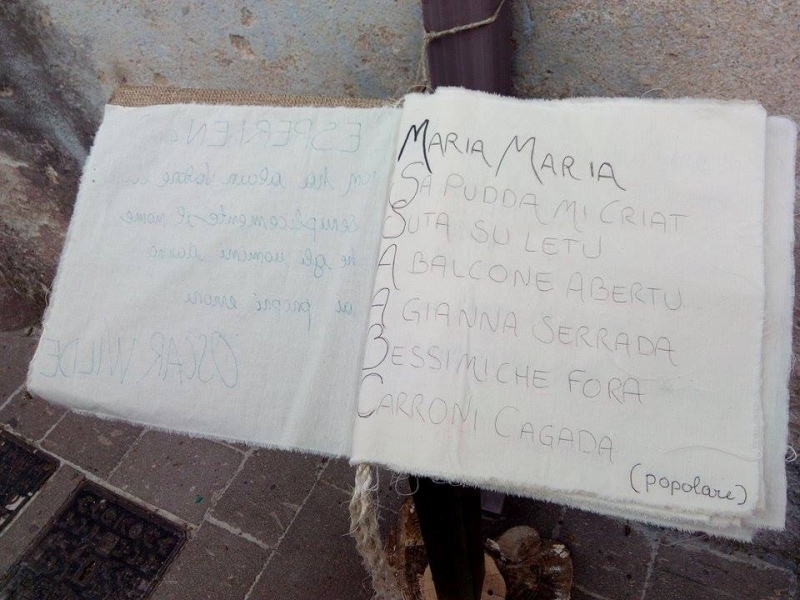 ESPERIENZ
ha alcun valore
semplicemente il nome
he gli uomini danno
ai propri errori
OSCAR WILDE
MARIA MARIA
SA PUDDA MI CRIAT
SUTA SU LETU
A BALCONE ABERTU
A GIANNA SERRADA
BESSIMICHE FORA
CARRONI CAGADA
(popolare)